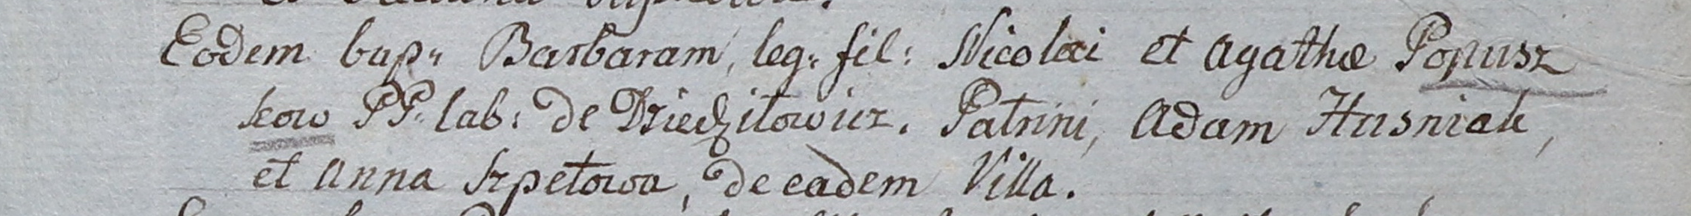 Eodem bap: Barbaram, leg: fil: Nicolai et Agathæ Popusz
kow PP. lab: de Dziedzitowicz. Patrini, Adam Husniak,
et Anna Szpetowa, de eadem Villa.